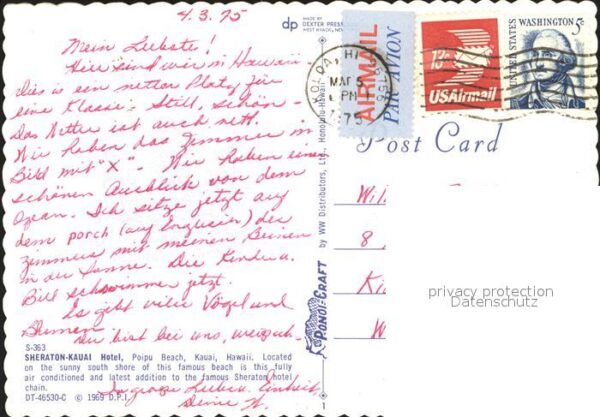 4.3.75
Mein Liebste!
Hier sind wir in Hawaii -
dies is ein netter Platz für
eine Klasse. Still, schön -
Das Wetter ist auch nett.
Wir haben das Zimmer im
Bild mit "X". Wir haben einen
schönen Ausblick von dem
Ozean. Ich sitze jetzt auf
dem porch (auf Englisch) des
Zimmers mit meinen Beinen
in der Sonne. Die Kinder u.
Bill schwimmen jetzt.
Es gibt viele Vögel und
Blumen.
Du bist bei uns,
In grosser Liebe u.
Deine
S-363
SHERATON-KAUAI Hotel, Poipu Beach, Kauai, Hawaii. Located
on the sunny south shore of this famous beach is this fully
air conditioned and latest addition to the famous Sheraton hotel
chain.
DT-46530-C © 1969 D.P.I.
dp
MADE BY
DEXTER PRESS
WEST NYACK, NEW
by WW Distributors, Ltd., Honolulu-Hawaii
PONOI-CRAFT
1
AIRMAIL
PAR AVION
KOLOA, HI
MAR 5
PM
1975
96756
13c
US Airmail
UNITED STATES
WASHINGTON 5c
Post Card
Wil
8
Ki
W
privacy protection
Datenschutz